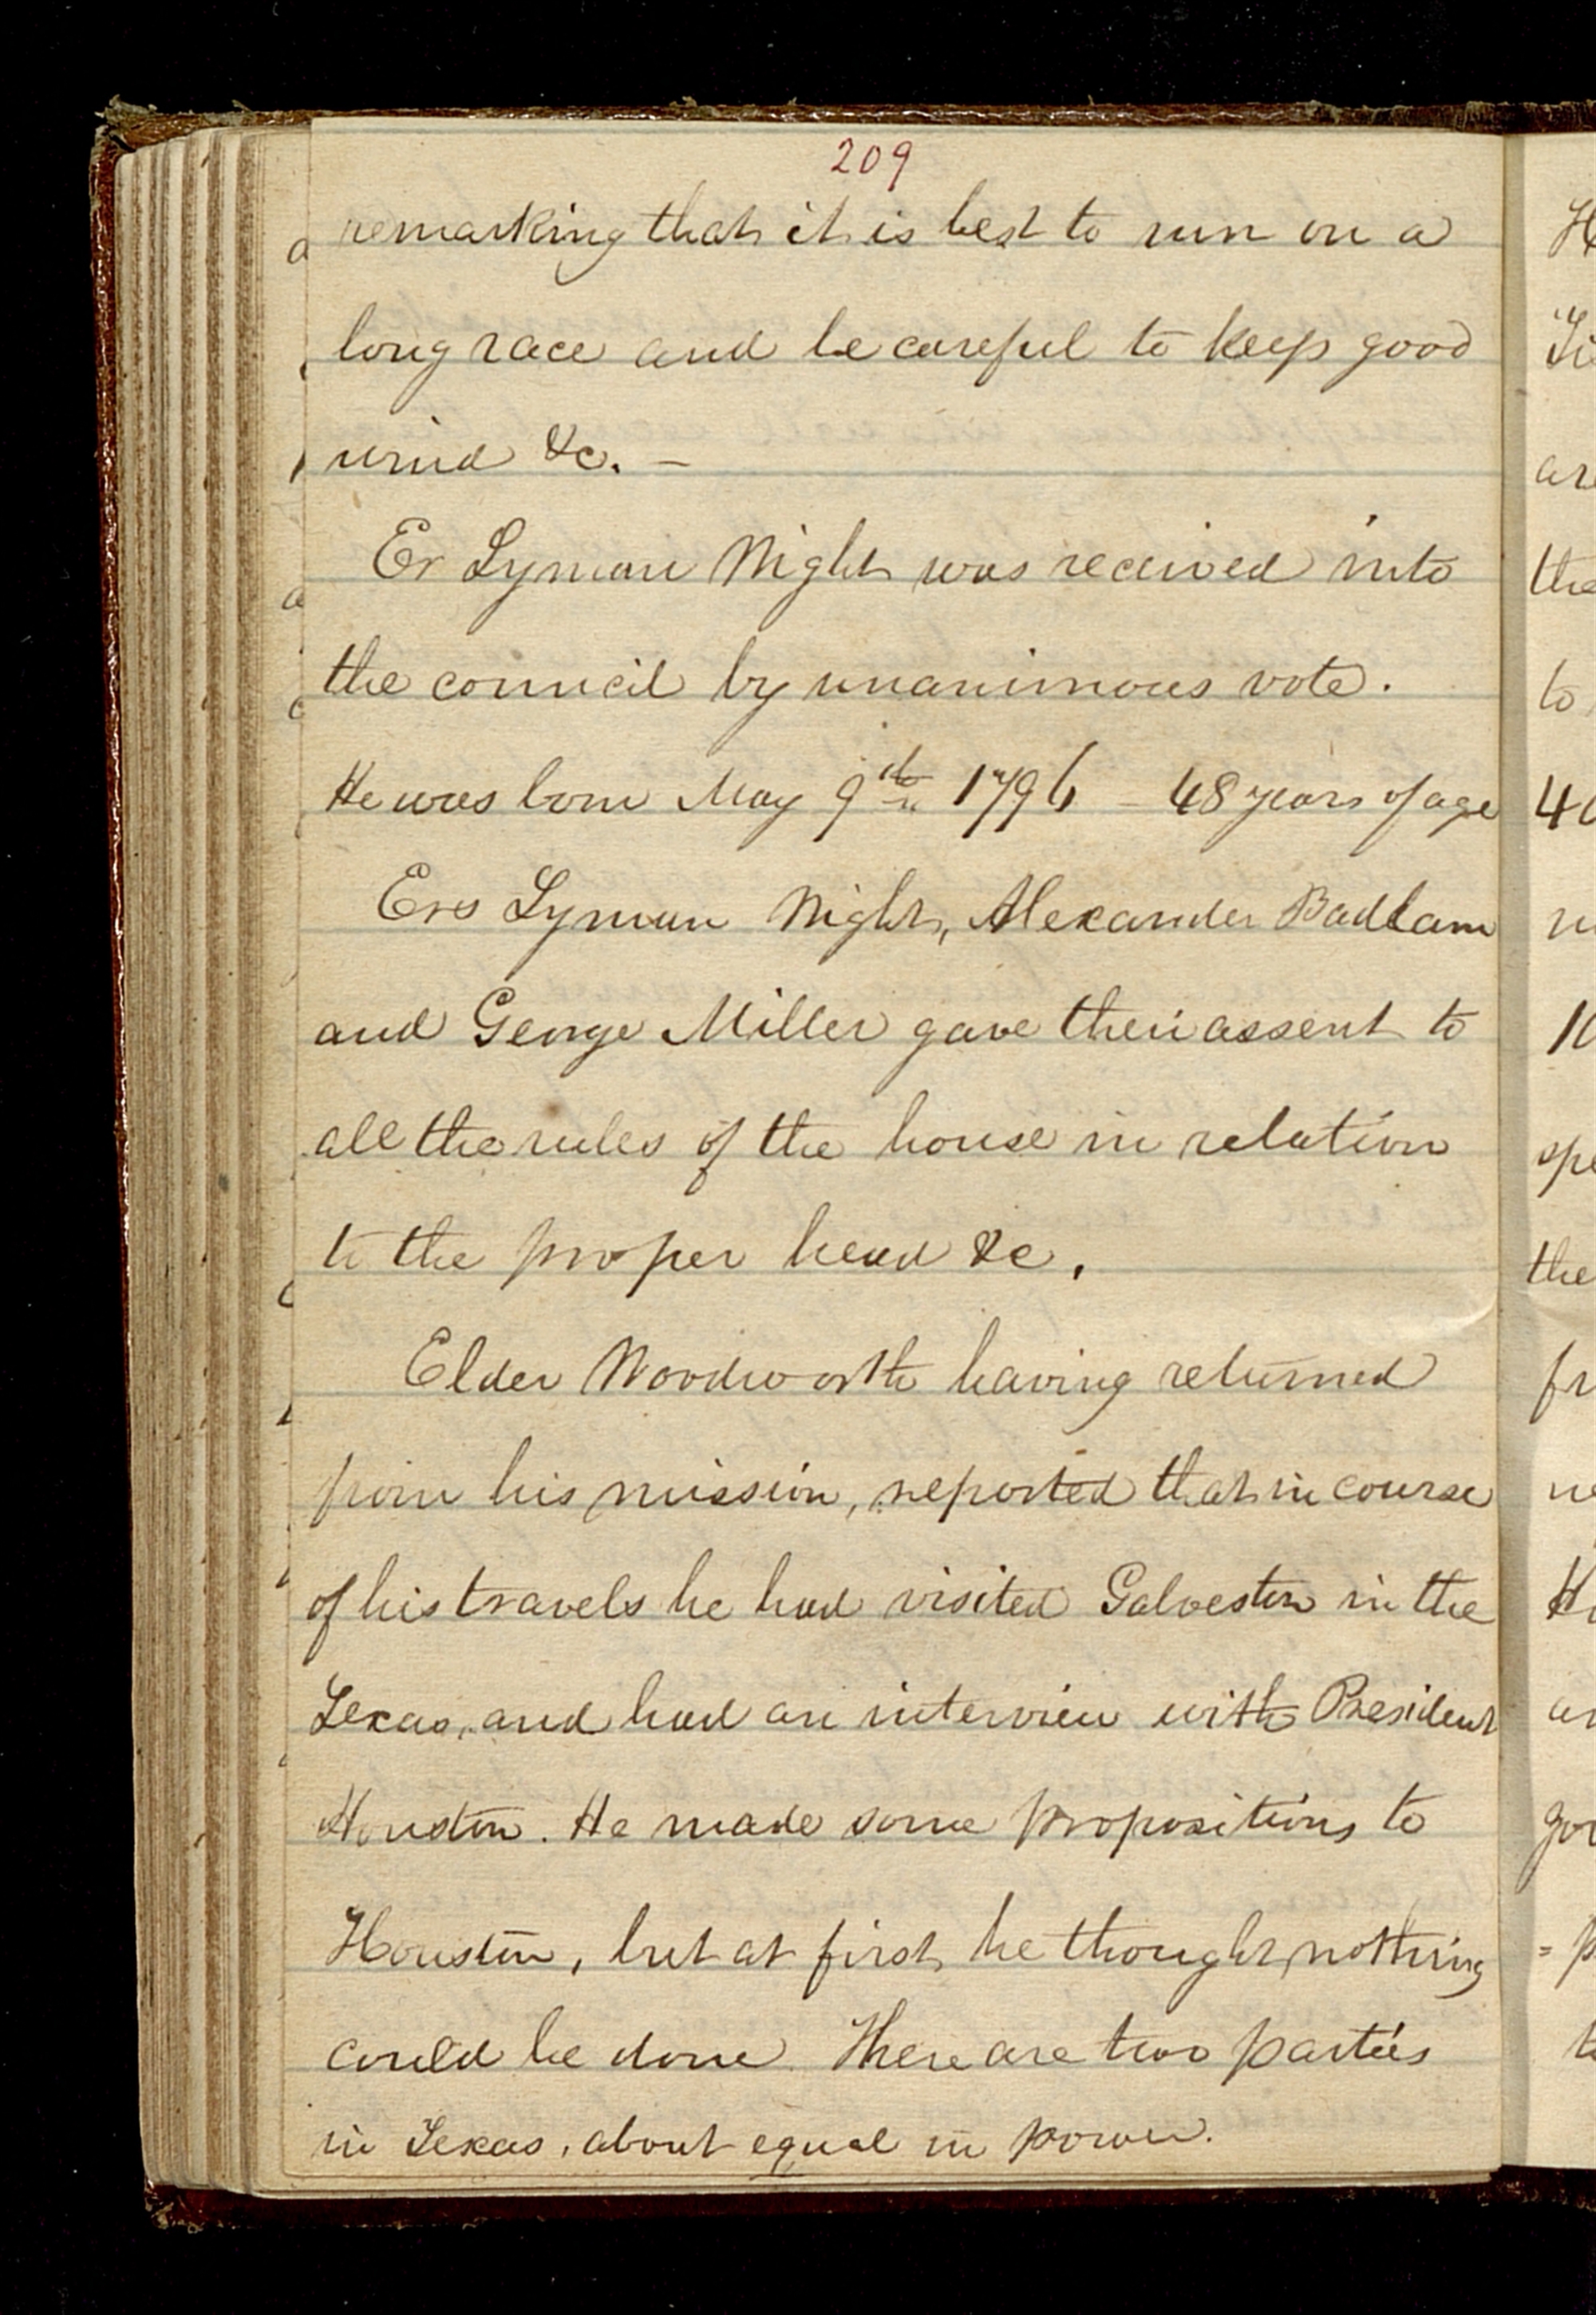 209
remarking that it is best to run on a
long race and be careful to keep good
wind &c. —
Er Lyman Wight was received into
the council by unanimous vote.
He was born May 9th 1796 — 48 years of age
Ers Lyman Wight, Alexander Badlam
and George Miller gave their assent to
all the rules of the house in relation
to the proper head &c.
Elder Woodworth having returned
from his mission, reported that in course
of his travels he had visited Galveston in the
Texas, and had an interview with President
Houston. He made some propositions to
Houston, but at first he thought nothing
could be done. There are two parties
in Texas, about equal in power.